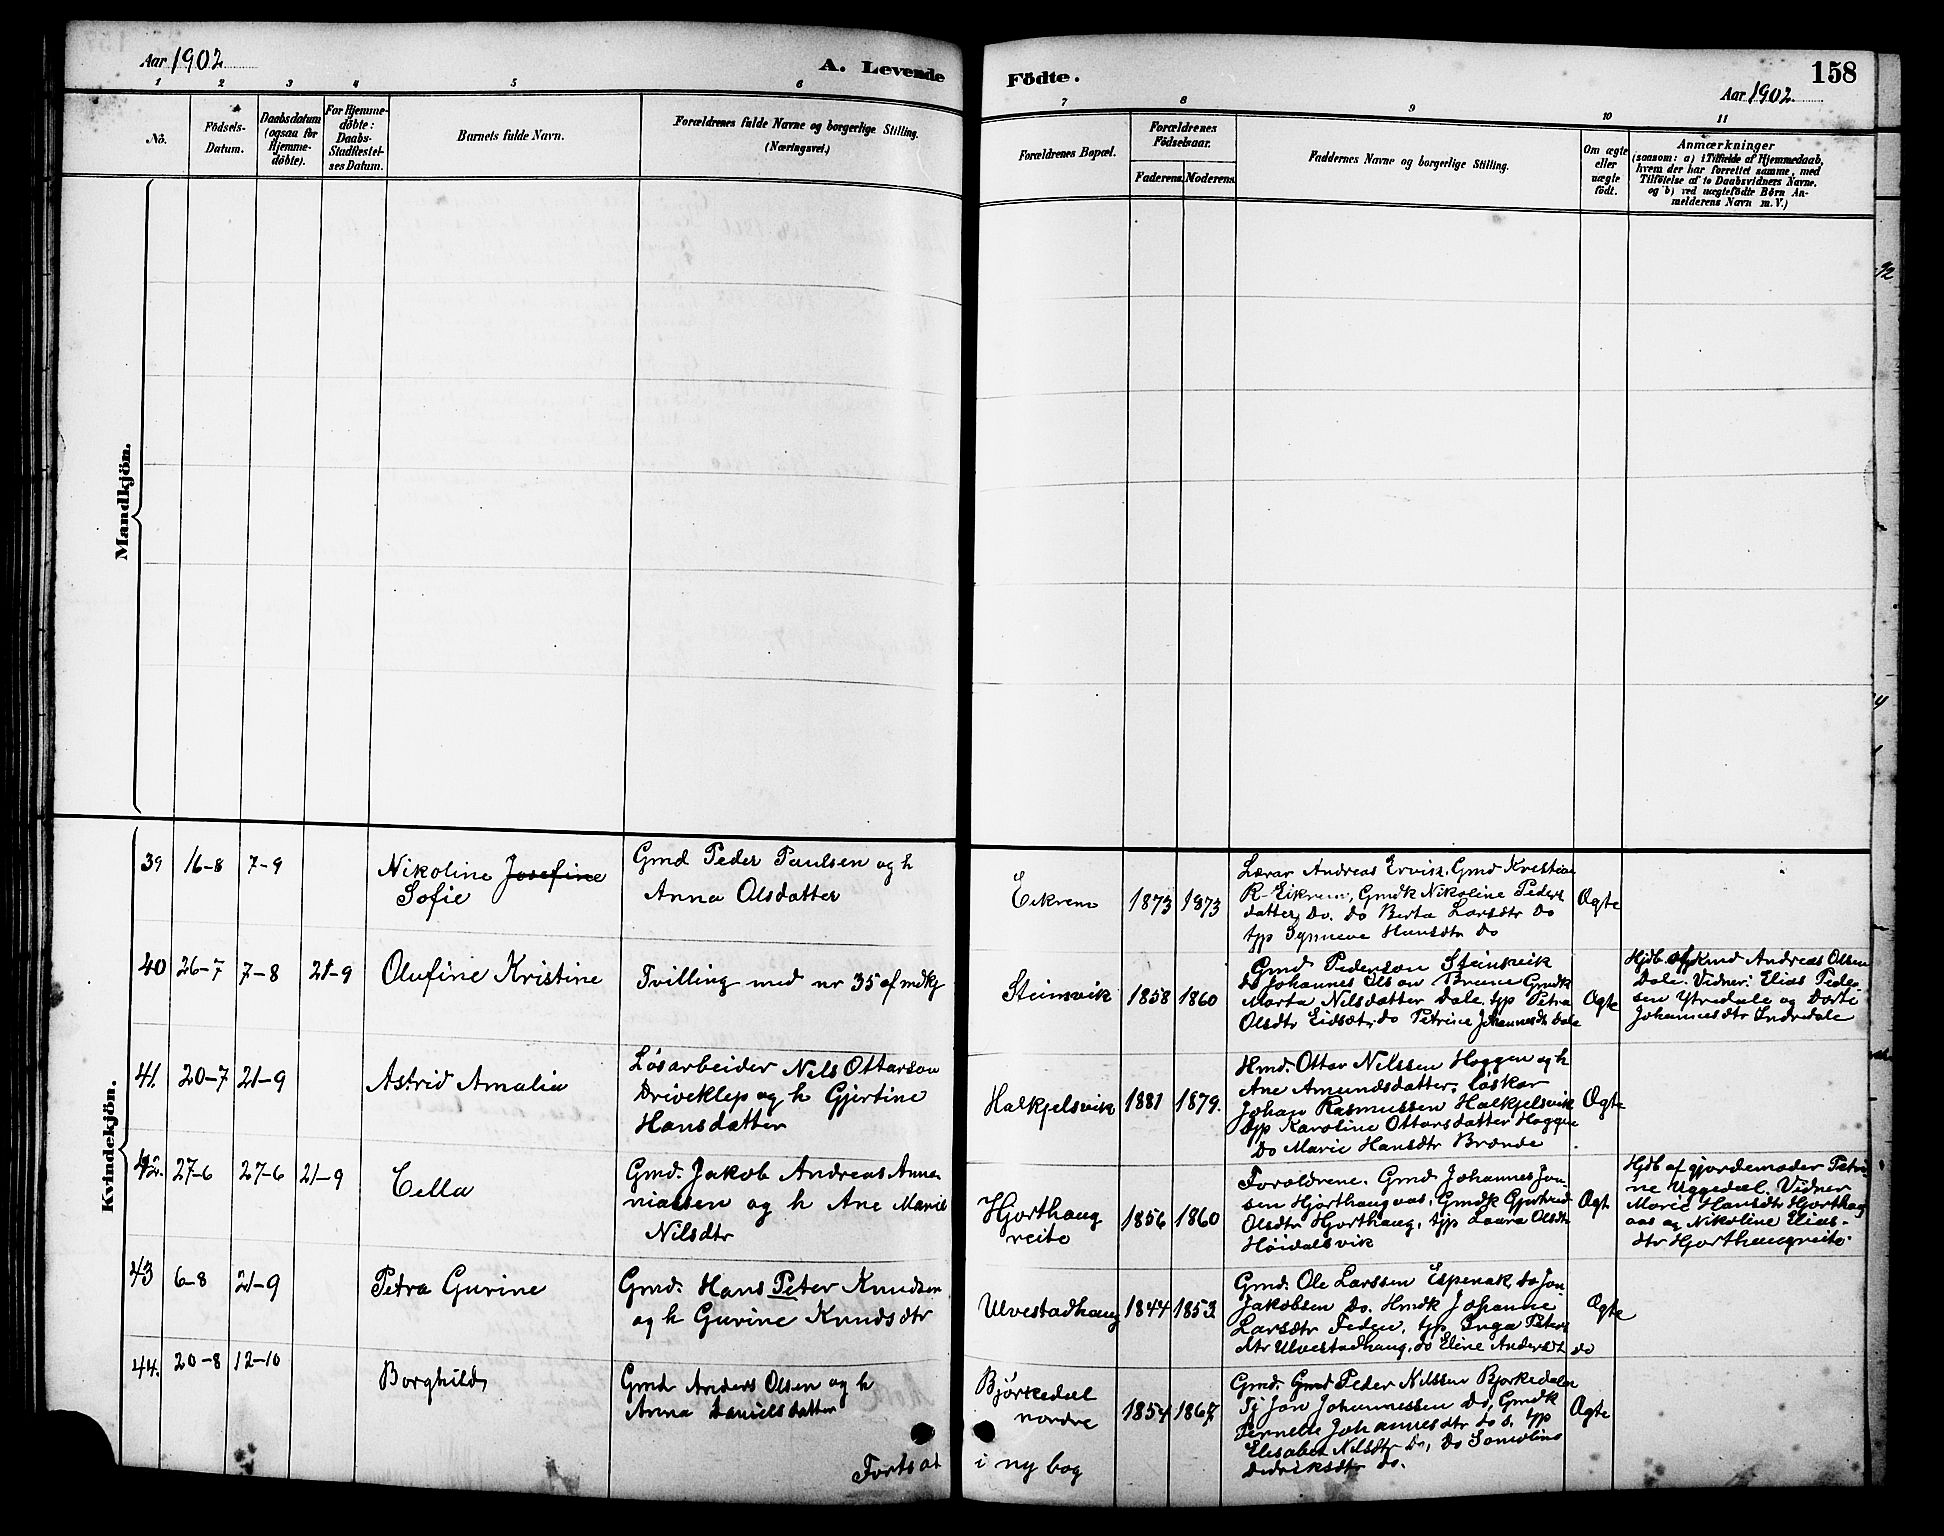 Aar 1902
A. Levende
Födte.
158
Aar 1902.
1 2 3 4 5 6
7 8 9 10 11
No.
Födsels-
Datum.
Daabsdatum
(ogsaa för
Hjemme-
döbte).
For Hjemme-
döbte:
Daabs-
Stadfæstel-
ses Datum.
Barnets fulde Navn.
Forældrenes fulde Navne og borgerlige Stilling.
(Næringsvei.)
Forældrenes Bopæl.
Forældrenes
Födselsaar.
Faderens. Moderens.
Faddernes Navne og borgerlige Stilling.
Om ægte
eller
uægte
födt.
Anmærkninger
(saasom: a) i Tilfælde af Hjemmedaab,
hvem der har forrettet samme, med
Tilföielse af to Daabsvidners Navne.
og b) ved uægtefödte Börn An-
melderens Navn m. V.)
Mandkjön.
Kvindekjön.
39 16-8 7-9
Nikoline Josefine
Sofie
Gmd Peder Paulsen og h
Anna Olsdatter
Eikrem
1873 1873
Lærar Andreas Ervik, Gmd Kristian
R. Eikrem, Gmdk Nikoline Peders
datter, Do. do Berta Larsdtr Do
typ Synneve Hansdtr do
Ægte
40 26-7 7-8 21-9
Olufine Kristine
Tvilling med nr 35 af mdkj
Steinsvik
1858 1860
Gmd Pederson Steinsvik
do Johannes Olson Brune Gmdk
Marta Nilsdatter Dale, typ Petra
Olsdtr Eidset, do Petrine Johannesdtr Dale
Ægte
Hjdb af Kmd Andreas Olsen
Dale. Vidner: Elias Peder-
sen Ytredale og Dorte
Johannesdtr Indredale
41. 20-7 21-9
Astrid Amalia
Løsarbeider Nils Ottarson
Driveklep og h Gjertine
Hansdatter
Halkjelsvik
1881 1879.
Hmd. Ottar Nilssen Hoggen og h
Ane Amundsdatter, løskar
Johan Rasmussen Halkjelsvik
typ Karoline Ottarsdatter Hoggen
Do Marie Hansdtr Brænde
Ægte
42. 27-6 27-6 21-9
Cella
Gmd. Jakob Andreas Anna-
niassen og h Ane Marie
Nilsdtr
Hjorthaug
reite
1856 1860
Foroldrene. Gmd Johannes Jon-
sen Hjorthaugaas, Gmdk Gjertrud
Olsdtr Hjorthaug, typ Laura Olsdtr
Høidalsvik
Ægt
Hjdb af gjordemoder Petri-
ne Uggedal. Vidner
Marie Hansdtr Hjorthaug
aas og Nikoline Elias-
dtr Hjorthaugreite.
43 6-8 21-9
Petra Gurine
Gmd. Hans Peter Knudsen
og h Gurine Knudsdtr
Ulvestadhaug
1844 1853
Gmd. Ole Larssen Espenak, do Jon
Jakobsen Do. Hmdk Johanne
Larsdtr Feden, typ Inga Peters
dtr Ulvestadhaug, do Eline Andersdt do
Ægte
44. 20-8 12-10
Borghild
Gmd Anders Olsen og h
Anna Danielsdatter
Bjørkedal
nordre
1854 1867
Gmd. Gmd Peder Nilssen Bjorkedalen
Tj Jon Johannessen Do, Gmdk
Pernelle Johannesdtr do s. typ
Elisabet Nilsdtr Do, Do Samoline
Dedriksdtr do.
Ægte
Fortsat
i ny bog